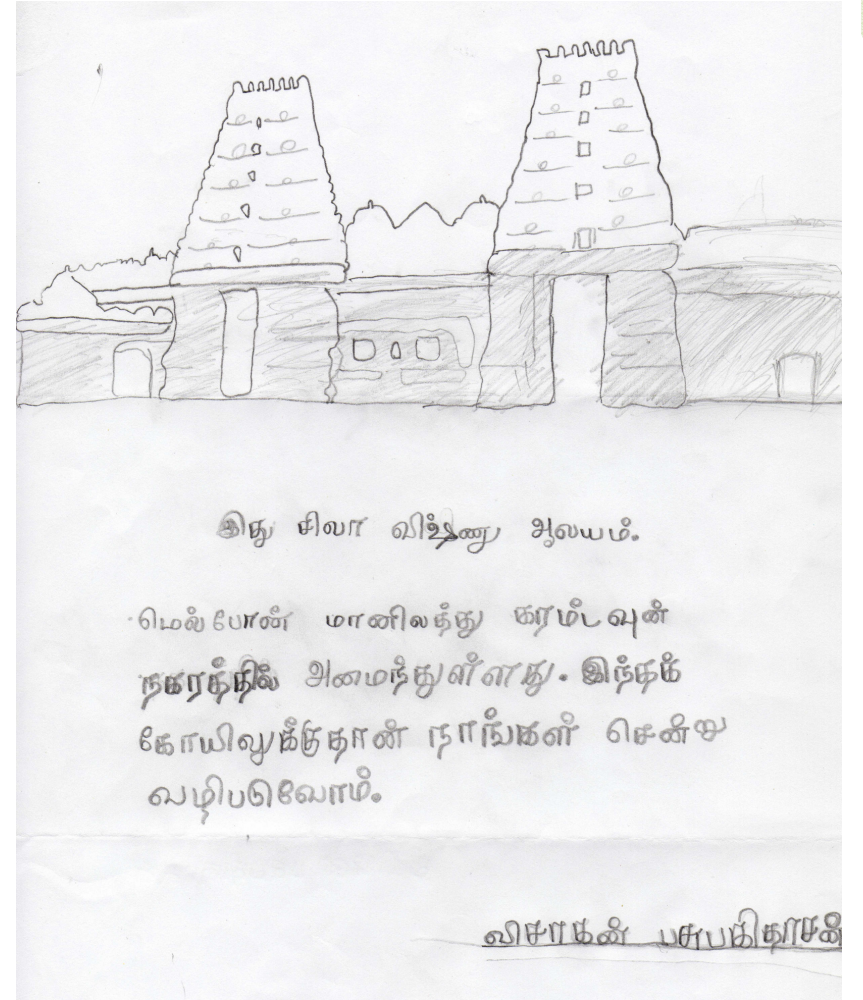 இது சிவா விஷ்ணு ஆலயம்.
மெல்போண் மானிலத்து கரம்டவுன்
நகரத்தில் அமைந்துள்ளது. இந்தக்
கோயிலுக்குதான் நாங்கள் சென்று
வழிபடுவோம்.
விசாகன் பசுபகிதாசன்